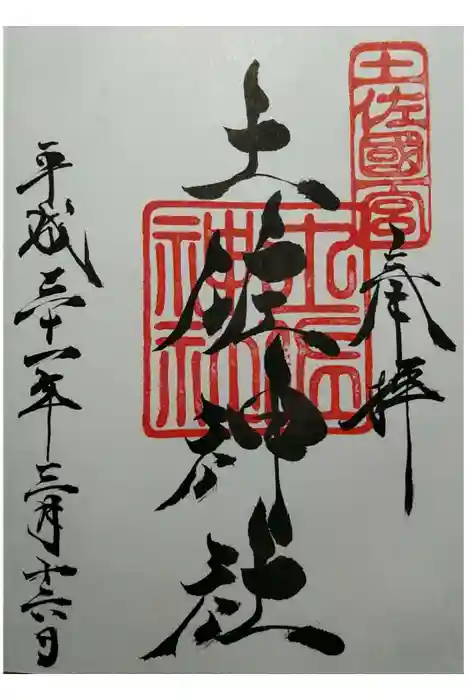 土佐國一宮
奉拝
土佐神社
土佐神社
平成三十一年三月十六日